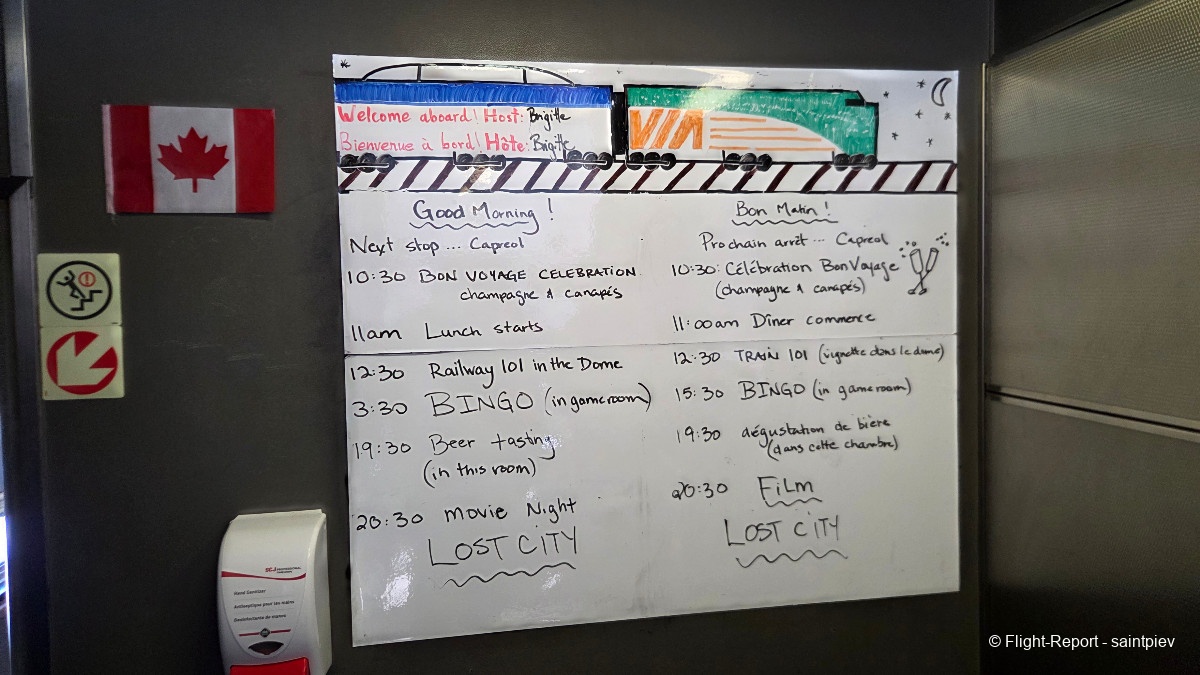 Welcome aboard! Host: Brigitte
Bienvenue à bord! Hôte: Brigitte
VIA
Good Morning!
Next stop ... Capreol
10:30 BON VOYAGE CELEBRATION
champagne & canapés
11am Lunch starts
12:30 Railway 101 in the Dome
3:30 BINGO (in gameroom)
19:30 Beer tasting
(in this room)
20:30 Movie Night
LOST CITY
Bon Matin!
Prochain arrêt ... Capreol
10:30: Célébration Bon Voyage
(champagne & canapés)
11:00am Dîner commence
12:30 TRAIN 101 (vignette dans le dome)
15:30 BINGO (in gameroom)
19:30 dégustation de bière
(dans cette chambre)
20:30 FiLM
LOST CITY
Hand Sanitizer
Antiseptique pour les mains
Desinfectante de manos
© Flight-Report - saintpiev